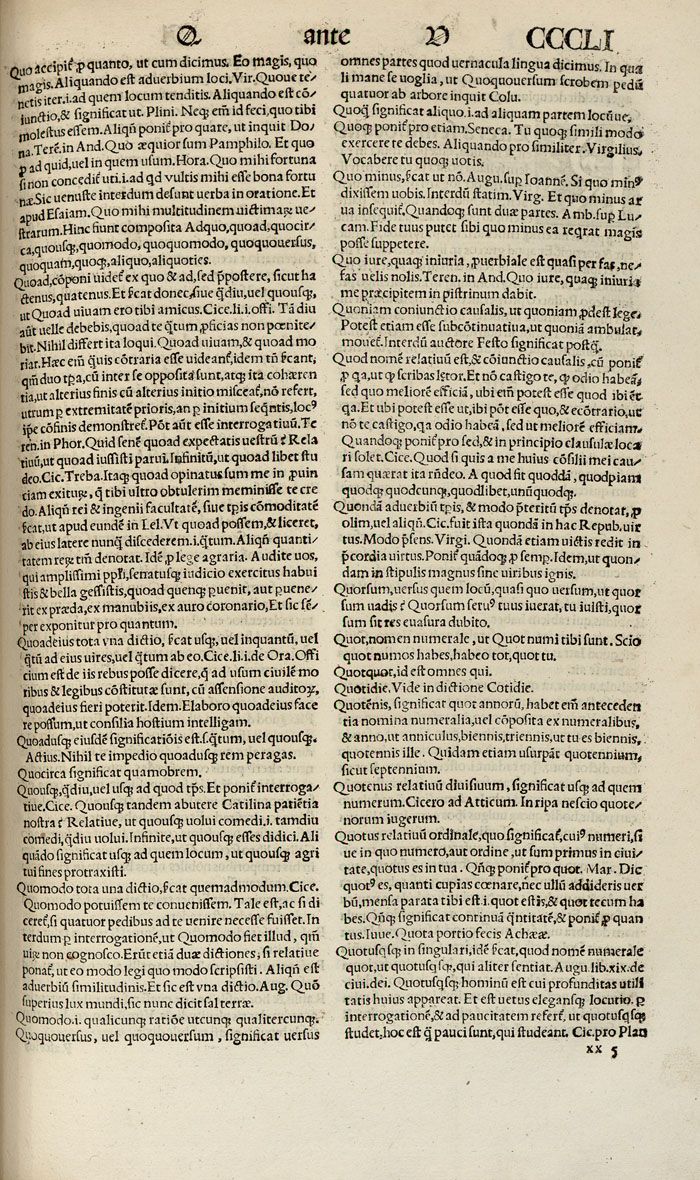 Q ante V CCCLI
Quo accipit᷑ ꝓ quanto, ut cum dicimus. Eo magis, quo
magis. Aliquando est aduerbium loci. Vir. Quoue te/
netis iter .i. ad quem locum tenditis. Aliquando est cō/
iunctio, & significat ut. Plini. Neq; em̄ id feci, quo tibi
molestus essem. Aliqñ ponit᷑ pro quare, ut inquit Do/
na. Terē. in And. Quo æquior sum Pamphilo. Et quo
ꝓ ad quid, uel in quem usum. Hora. Quo mihi fortuna
si non concedit᷑ uti .i. ad qd uultis mihi esse bona fortu
næ. Sic uenuste interdum desunt uerba in oratione. Et
apud Esaiam. Quo mihi multitudinem uictimaꝝ ue/
strarum. Hinc fiunt composita Adquo, quoad, quocir/
ca, quousq;, quomodo, quoquomodo, quoquouersus,
quoquam, quoq;, aliquo, aliquoties.
Quoad, cōponi uidet᷑ ex quo & ad, sed p̄postere, sicut ha
ctenus, quatenus. Et s̄cat donec, siue q̄diu, uel quousq;,
ut Quoad uiuam ero tibi amicus. Cice. li. i. offi. Tā diu
aūt uelle debebis, quoad te q̄tum ꝓficias non pœnite/
bit. Nihil differt ita loqui. Quoad uiuam, & quoad mo
riar. Hæc em̄ q̄uis cōtraria esse uideant᷑, idem tn̄ s̄cant,
qm̄ duo tꝑa, cū inter se opposita sunt, atq; ita cohæren
tia, ut alterius finis cū alterius initio misceat᷑, nō refert,
utrum ꝑ extremitatē prioris, an ꝑ initium seq̄ntis, locꝰ
ip̄e cōfinis demonstret᷑. Pōt aūt esse interrogatiuū. Te
ren. in Phor. Quid senē quoad expectatis uestrū? Rela
tiuū, ut quoad iussisti parui. Infinitū, ut quoad libet stu
deo. Cic. Treba. Itaq; quoad opinatus sum me in ꝓuin
ciam exituꝝ, q̄ tibi ultro obtulerim meminisse te cre
do. Aliqñ rei & ingenii facultatē, siue tꝑis cōmoditatē
s̄cat, ut apud eundē in Lel. Vt quoad possem, & liceret,
ab eius latere nunq̄ discederem .i. q̄tum. Aliqñ quanti/
tatem reꝝ tm̄ denotat. Idē ꝓ lege agraria. Audite uos,
qui amplissimi pp̄li, senatusq; iudicio exercitus habui
stis & bella gessistis, quoad quenq; puenit, aut puene/
rit ex præda, ex manubiis, ex auro coronario, Et sic sē/
per exponitur pro quantum.
Quoadeius tota vna dictio, s̄cat usq;, uel inquantū, uel
q̄tū ad eius uires, uel q̄tum ab eo. Cice. li. i. de Ora. Offi
cium est de iis rebus posse dicere, q̄ ad usum ciuilē mo
ribus & legibus cōstitutæ sunt, cū assensione auditoꝝ,
quoadeius fieri poterit. Idem. Elaboro quoadeius face
re possum, ut consilia hostium intelligam.
Quoadusq; eiusdē significatiōis est .s. q̄tum, uel quousq;.
Actius. Nihil te impedio quoadusq; rem peragas.
Quocirca significat quamobrem.
Quousq;, q̄diu, uel usq; ad quod tꝑs. Et ponit᷑ interroga/
tiue. Cice. Quousq; tandem abutere Catilina patiētia
nostra? Relatiue, ut quousq; uolui comedi .i. tamdiu
comedi, q̄diu uolui. Infinite, ut quousq; esses didici. Ali
quādo significat usq; ad quem locum, ut quousq; agri
tui fines protraxisti.
Quomodo tota una dictio, s̄cat quemadmodum. Cice.
Quomodo potuissem te conuenissem. Tale est, ac si di
ceret᷑, si quatuor pedibus ad te uenire necesse fuisset. In
terdum ꝑ interrogationē, ut Quomodo fiet illud, qm̄
uiꝝ non cognosco. Erūt etiā duæ dictiones, si relatiue
ponat᷑, ut eo modo legi quo modo scripsisti. Aliqñ est
aduerbiū similitudinis. Et sic est vna dictio. Aug. Quō
superius lux mundi, sic nunc dicit sal terræ.
Quomodo .i. qualicunq; ratiōe utcunq; qualitercunq;.
Quoquouersus, uel quoquouersum, significat uersus
omnes partes quod uernacula lingua dicimus. In qua
li mane se uoglia, ut Quoquouersum scrobem pedū
quatuor ab arbore inquit Colu.
Quoq̄ significat aliquo .i. ad aliquam partem locūue.
Quoq; ponit᷑ pro etiam, Seneca. Tu quoq; simili modo
exercere te debes. Aliquando pro similiter. Virgilius.
Vocabere tu quoq; uotis.
Quo minus, s̄cat ut nō. Augu. sup̱ Ioannē. Si quo minꝰ
dixissem uobis. Interdū statim. Virg. Et quo minus ar
ua insequit᷑. Quandoq; sunt duæ partes. Amb. sup̱ Lu/
cam. Fide tuus putet sibi quo minus ea reqrat magis
posse suppetere.
Quo iure, quaq; iniuria, ꝓuerbiale est quasi per fas, ne/
fas uelis nolis. Teren. in And. Quo iure, quaq; iniuria
me præcipitem in pistrinum dabit.
Quoniam coniunctio causalis, ut quoniam ꝓdest lege.
Potest etiam esse subcōtinuatiua, ut quoniā ambulat,
mouet᷑. Interdū auctore Festo significat postq̄.
Quod nomē relatiuū est, & cōiunctio causalis, cū ponit᷑
ꝓ qa, ut ꝙ scribas lętor. Et nō castigo te, ꝙ odio habeā,
sed quo meliorē efficiā, ubi em̄ potest esse quod ibi ēt
qa. Et ubi potest esse ut, ibi pōt esse quo, & ecōtrario, ut
nō te castigo, qa odio habeā, sed ut meliorē efficiam.
Quandoq; ponit᷑ pro sed, & in principio clausulæ loca
ri solet. Cice. Quod si quis a me huius cōsilii mei cau/
sam quærat ita rñdeo. A quod fit quoddā, quodpiam
quodq; quodcunq;, quodlibet, unūquodq;.
Quondā aduerbiū tꝑis, & modo p̄teritū tꝑs denotat, ꝓ
olim, uel aliqñ. Cic. fuit ista quondā in hac Repub. uir
tus. Modo p̄sens. Virgi. Quondā etiam uictis redit in
p̄cordia uirtus. Ponit᷑ quādoq; ꝓ semp̱. Idem, ut quon/
dam in stipulis magnus sine uiribus ignis.
Quorsum, uersus quem locū, quasi quo uersum, ut quor
sum uadis? Quorsum seruꝰ tuus iuerat, tu iuisti, quor
sum sit res euasura dubito.
Quot, nomen numerale, ut Quot numi tibi sunt. Scio
quot numos habes, habeo tot, quot tu.
Quotquot, id est omnes qui.
Quotidie. Vide in dictione Cotidie.
Quotēnis, significat quot annorū, habet em̄ anteceden
tia nomina numeralia, uel cōposita ex numeralibus,
& anno, ut anniculus, biennis, triennis, ut tu es biennis,
quotennis ille. Quidam etiam usurpāt quotennium,
sicut septennium.
Quotenus relatiuū diuisiuum, significat usq; ad quem
numerum. Cicero ad Atticum. In ripa nescio quote/
norum iugerum.
Quotus relatiuū ordinale, quo significat᷑, cuiꝰ numeri, si
ue in quo numero, aut ordine, ut sum primus in ciui/
tate, quotus es in tua. Qñq; ponit᷑ pro quot. Mar. Dic
quotꝰ es, quanti cupias cœnare, nec ullū addideris uer
bū, mensa parata tibi est .i. quot estis, & quot tecum ha
bes. Qñq; significat continuā q̄ntitatē, & ponit᷑ ꝓ quan
tus. Iuue. Quota portio fecis Achææ.
Quotusq̄sq; in singulari, idē s̄cat, quod nomē numerale
quot, ut quotusq̄sq;, qui aliter sentiat. Augu. lib. xix. de
ciui. dei. Quotusq̄sq; hominū est cui profunditas utili
tatis huius appareat. Et est uetus elegansq; locutio. ꝑ
interrogationē, & ad paucitatem refert᷑, ut quotusq̄sq;
studet, hoc est q̄ pauci sunt, qui studeant. Cic. pro Plan
xx 5